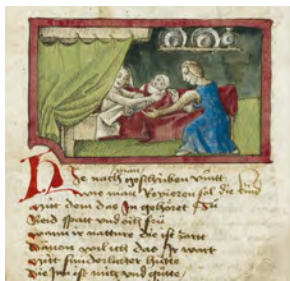 Hie nach geschriben vintt
man
wie man Regieren sol die kind
mit dem das In gehöret zu
Beid spatt und och fru
wann ir natture die ist zartt
Danon wil ich das Ir wart
mitt sunderlicher hutte
die In ist nutz und gutte